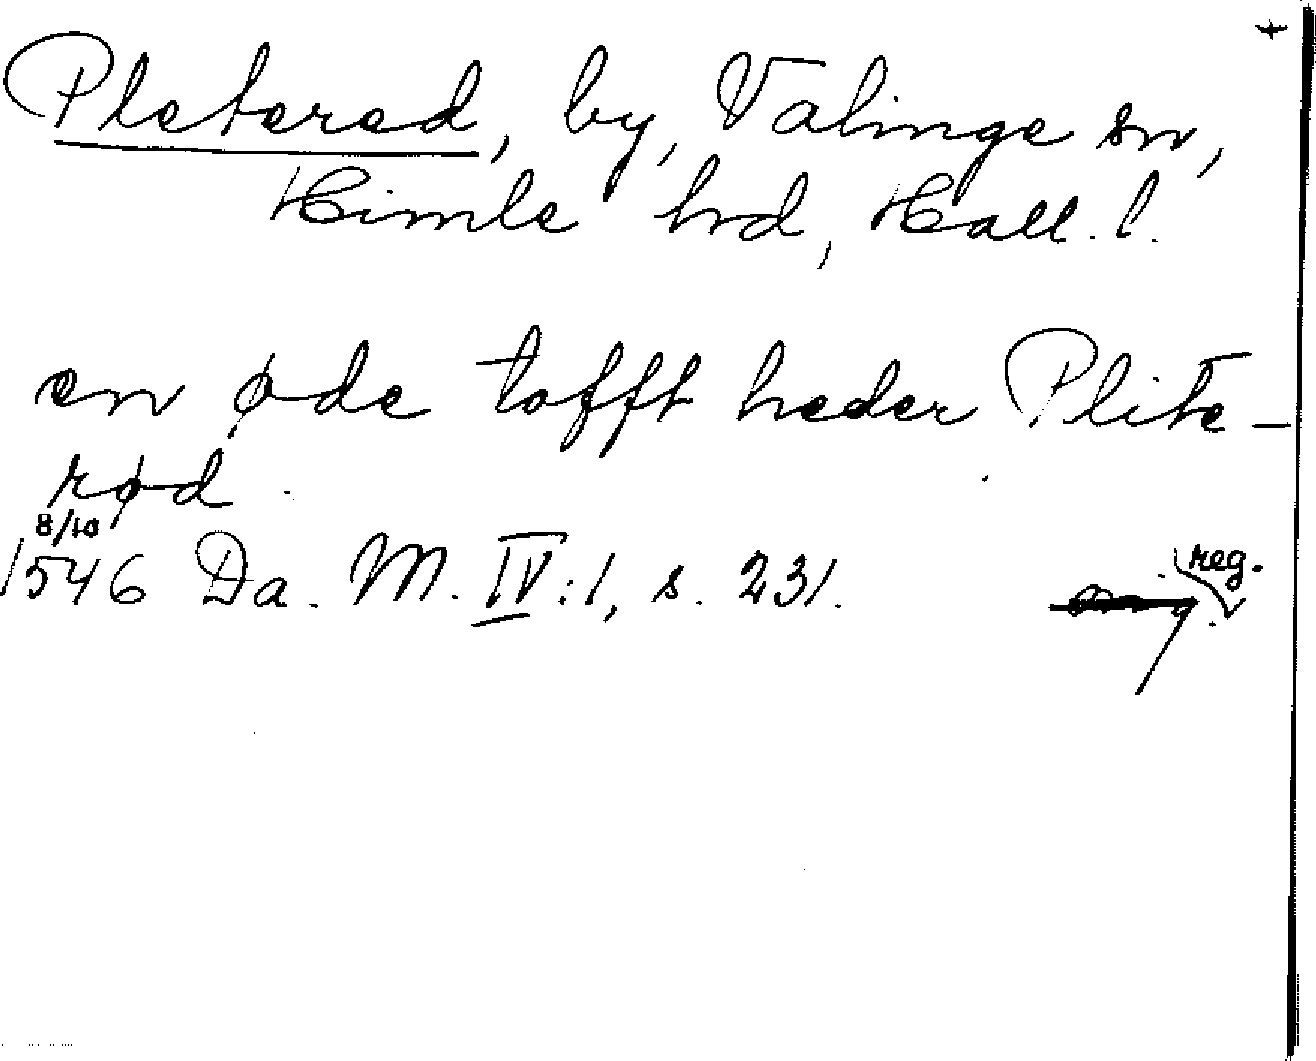 Pletered, by, Valinge sn,
Himle hrd, Hall. l.
en øde tofft heder Plite-
rød.
8/10
1546 Da. M. IV:1, s. 231.
reg.